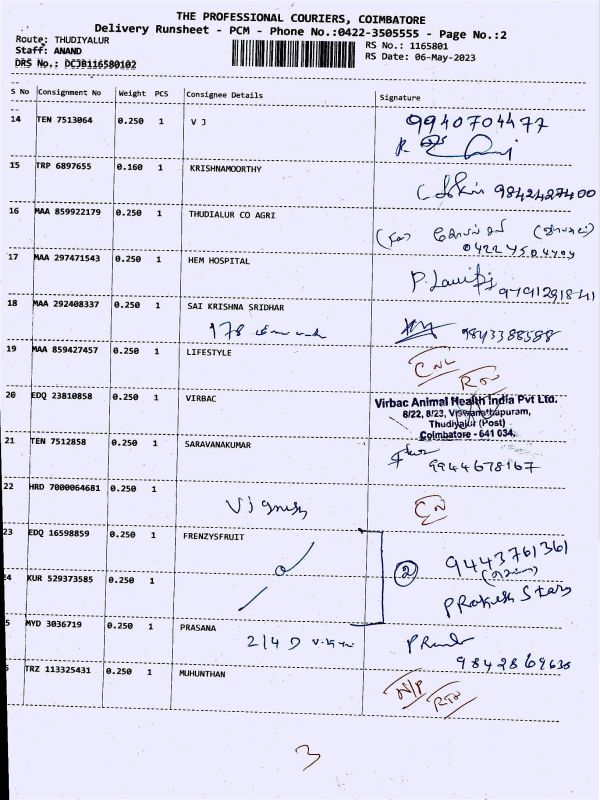 THE PROFESSIONAL COURIERS, COIMBATORE
Delivery Runsheet - PCM - Phone No.:0422-3505555 - Page No.:2
Route: THUDIYALUR
Staff: ANAND
DRS No.: DCJB116580102
RS No.: 1165801
RS Date: 06-May-2023
S No Consignment No Weight PCS Consignee Details Signature
14 TEN 7513064 0.250 1 V J 9940704477
15 TRP 6897655 0.160 1 KRISHNAMOORTHY
9842427400
16 MAA 859922179 0.250 1 THUDIALUR CO AGRI
17 MAA 297471543 0.250 1 HEM HOSPITAL
18 MAA 292408337 0.250 1 SAI KRISHNA SRIDHAR
178 9843388588
19 MAA 859427457 0.250 1 LIFESTYLE
20 EDQ 23810858 0.250 1 VIRBAC
Virbac Animal Health India Pvt Ltd.
6/22, 8/23, Viswanathapuram,
Thudiyalur (Post)
Coimbatore - 641 034.
21 TEN 7512858 0.250 1 SARAVANAKUMAR
9944678167
22 HRD 7000064681 0.250 1
Vignesh
23 EDQ 16598859 0.250 1 FRENZYSFRUIT
2 9443761361
24 KUR 529373585 0.250 1
PRakesh Stars
5 MYD 3036719 0.250 1 PRASANA
214 D
TRZ 113325431 0.250 1 MUHUNTHAN
N/P
3